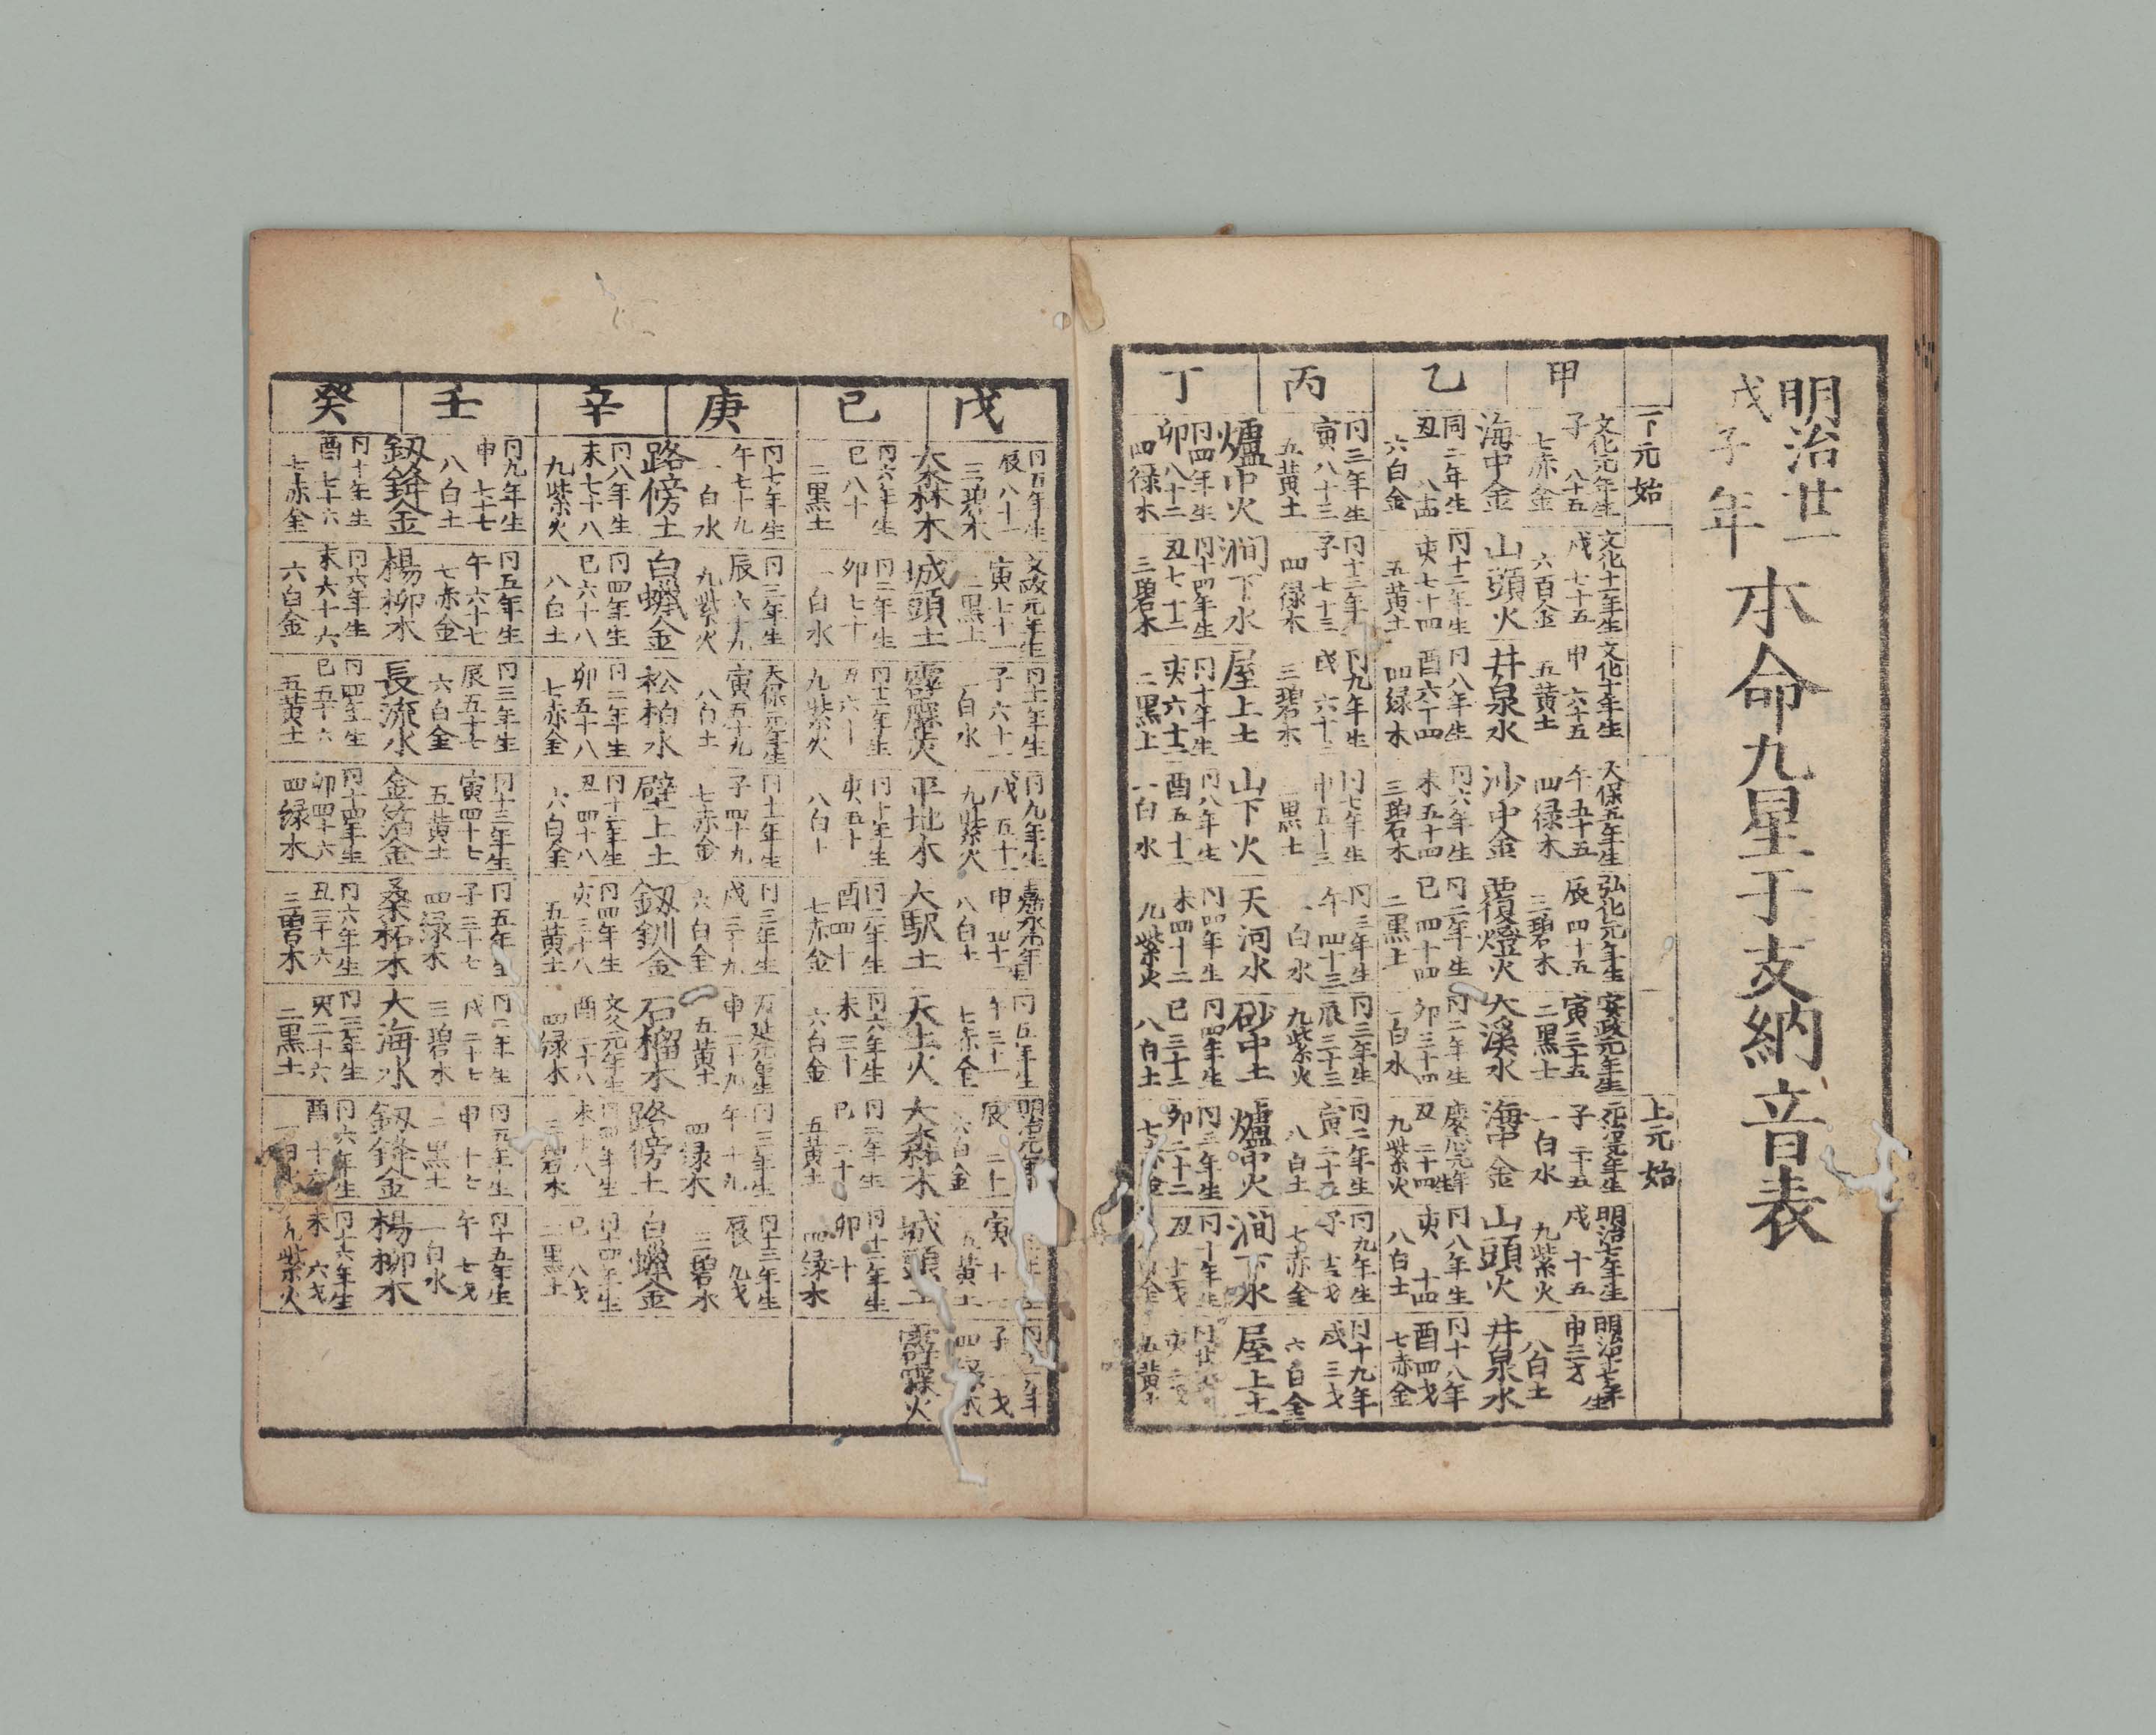 明治廿一
戊子年
本命九星干支納音表
下元始
上元始
甲
文化元年生
子 八十五
七赤金
文化十一年生
戌 七十五
六百金
文化十年生
申 六十五
五黄土
天保五年生
午五十五
四禄木
弘化元年生
辰四十五
三碧木
安政元年生
寅三十五
二黒土
子 二十五
一白水
明治七年生
戌 十五
九紫火
申三才
八白土
海中金
山頭火
井泉水
沙中金
覆燈火
大溪水
海中金
山頭火
井泉水
乙
同二年生
丑 八十四
六白金
冋十二年生
亥七十四
五黄土
冋八年生
酉六十四
四緑木
冋六年生
未五十四
三碧木
冋二年生
巳四十四
二黒土
冋二年生
卯三十四
一白水
慶應元年生
丑 二十四
九紫火
冋八年生
亥 十四
八白土
冋十八年
酉四才
七赤金
丙
冋三年生
寅八十三
五黄土
冋十三年生
子七十三
四禄木
冋九年生
戌六十三
三碧木
冋七年生
申五十三
二黒土
冋三年生
午四十三
一白水
冋三年生
辰三十三
九紫火
冋二年生
寅二十三
八白土
冋九年生
子
七赤金
冋十九年
戌三才
六白金
爐中火
澗下水
屋上土
山下火
天河水
砂中土
爐中火
澗下水
屋上土
丁
冋四年生
卯八十二
四禄木
冋十四年生
丑七十二
三碧木
冋十年生
亥六十二
二黒土
冋八年生
酉五十二
一白水
冋四年生
未四十二
九紫火
冋四年生
巳三十二
八白土
冋三年生
卯二十二
冋十年生
丑
五黄土
戊
冋五年生
辰八十一
三碧木
文政元年生
寅七十一
二黒土
冋十一年生
子六十一
一白水
冋九年生
戌五十一
九紫火
嘉永元年生
申四十一
八白土
冋五年生
午三十一
七赤金
明治元年
辰 二十一
六白金
寅 十一
五黄土
子 一才
大森木
城頭土
霹靂火
平地木
大駅土
天上火
大森木
城頭土
霹靂火
己
冋六年生
巳八十
二黒土
冋二年生
卯七十
一白水
冋十二年生
丑六十
九紫火
冋十年生
亥五十
八白土
冋二年生
酉四十
七赤金
冋六年生
未三十
六白金
冋二年生
巳二十
五黄土
冋十二年生
卯十
四緑木
庚
冋七年生
午七十九
一白水
冋三年生
辰六十九
九紫火
天保元年生
寅五十九
八白土
冋十一年生
子四十九
七赤金
冋三年生
戌三十九
六白金
万延元年生
申二十九
五黄土
冋三年生
午十九
四緑木
冋十三年生
辰九才
三碧木
路傍土
白蠟金
松柏水
壁上土
釼釧金
石榴木
路傍土
白蠟金
辛
冋八年生
未七十八
九紫火
冋四年生
巳六十八
八白土
冋二年生
卯五十八
七赤金
冋十二年生
丑四十八
六白金
冋四年生
亥三十八
五黄土
文久元年生
酉二十八
四緑木
冋四年生
未十八
三碧木
冋十四年生
巳八才
二黒土
壬
冋九年生
申七十七
八白土
冋五年生
午六十七
七赤金
冋三年生
辰五十七
六白金
冋十三年生
寅四十七
五黄土
冋五年生
子三十七
四緑木
冋二年生
戌二十七
三碧木
冋五年生
申十七
二黒土
冋十五年生
午七才
一白水
釼鋒金
楊柳木
長流水
金箔金
桑柘木
大海水
釼鋒金
楊柳木
癸
冋十年生
酉七十六
七赤金
冋六年生
未六十六
六白金
冋四年生
巳五十六
五黄土
冋十四年生
卯四十六
四緑木
冋六年生
丑三十六
三碧木
冋三年生
亥二十六
二黒土
冋六年生
酉十六
冋十六年生
未六才
九紫火